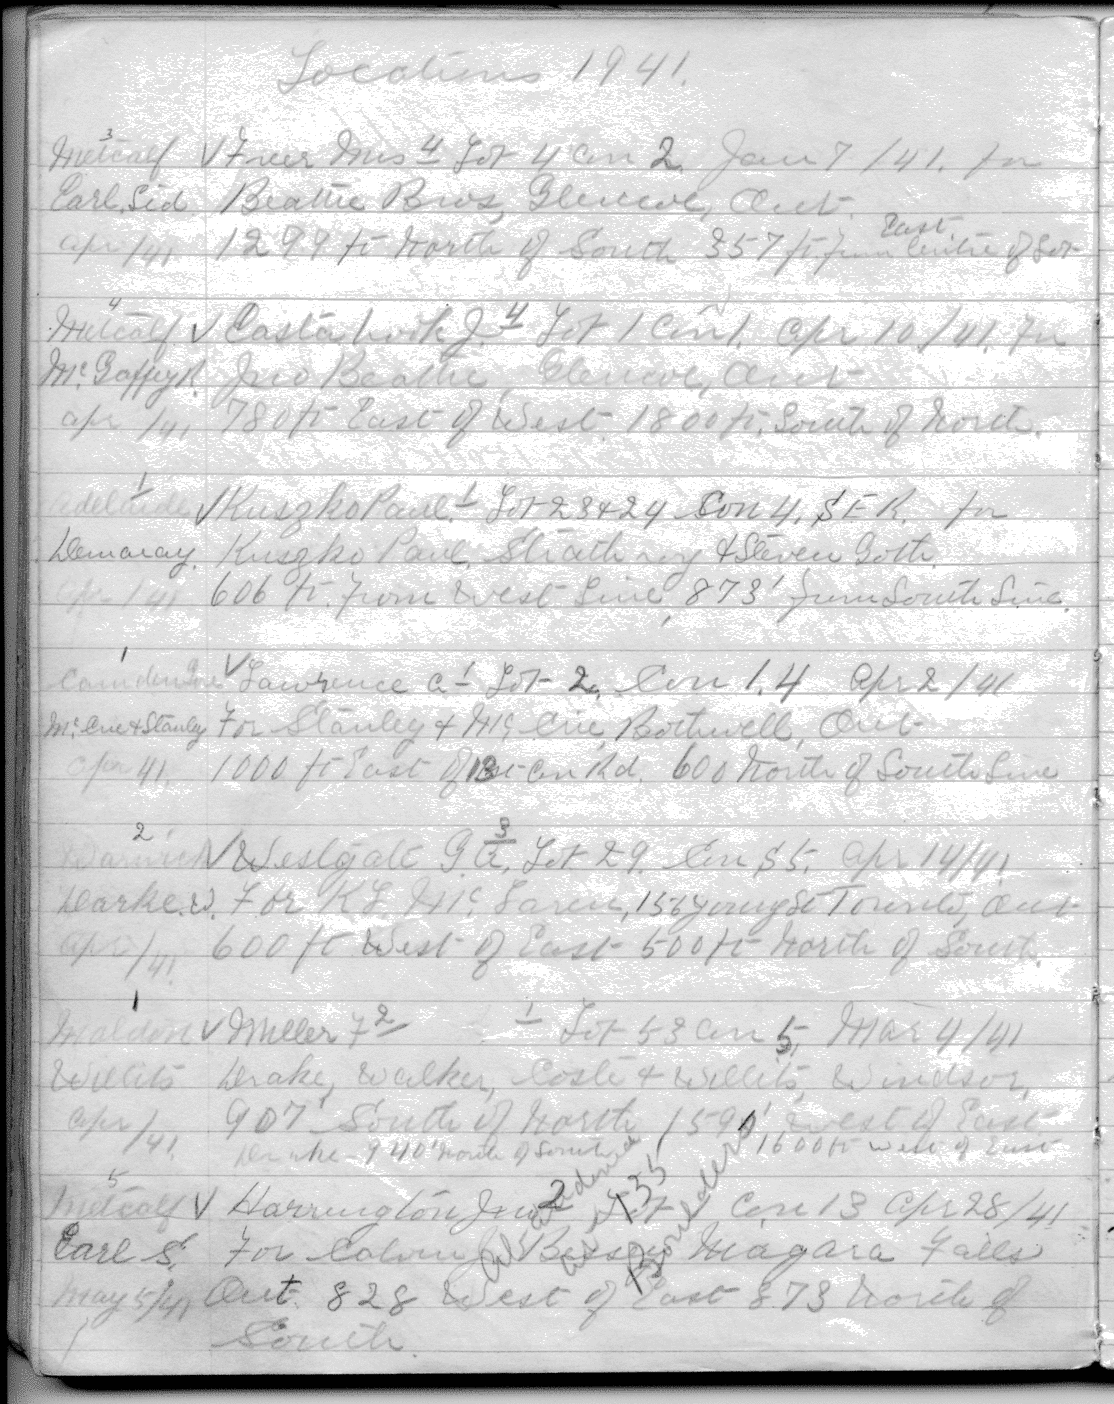 Locations 1941.
3
Metcalf √ Freer Mrs 4 Lot 4 Con 2 Jan 7/41. for
Earl, Sid. Beattie Bros, Glencoe, Ont.
East
Apr/41 1299 ft North of South 357 ft. from Centre of Lot
4
Metcalf √ J. 4 Lot 1 Con 1. Apr 10/41. For
Mc Gaffey R. Jno Beattie, Glencoe, Ont
Apr/41 780 ft East of West. 1800 ft. South of North.
1
Adelaide √ Kuszko Paul. 1 Lot 23+24 Con 4, S E R. for
Demaray. Kuszko Paul, Strathroy & Steven Goth.
Apr/41 606 ft. from West Line, 873' from South Line.
1
Camden Gore √ Lawrence C. 1 Lot 2, Con 1.4 Apr 2/41
Mc Crie & Stanley For Stanley & Mc Crie, Bothwell, Ont
Apr 41. 1000 ft East of Con Rd. 600 North of South Line
2
Warwick √ Westgate G. 3 Lot 29. Con S 5. Apr 14/41.
Darke. W. For K.L. Mc Laren, 156 Yonge St Toronto, Ont
Apr/41 600 ft West of East 500 ft North of South.
1
Maldon √ Miller F 2 1 Lot 53 Con 5, Mar 4/41
Willits Drake, Walker, Coste & Willits, Windsor,
Apr/41. 907' South of North 1590' West of East
Drake 940' North of South 1600 ft West of East
5
Metcalf √ Harrington Jno 2 Lot 1 Con 13 Apr 28/41
Earl S. For Niagara Falls
May 5/41 Ont. 828 West of East 873 North of
South.
Abandoned
135